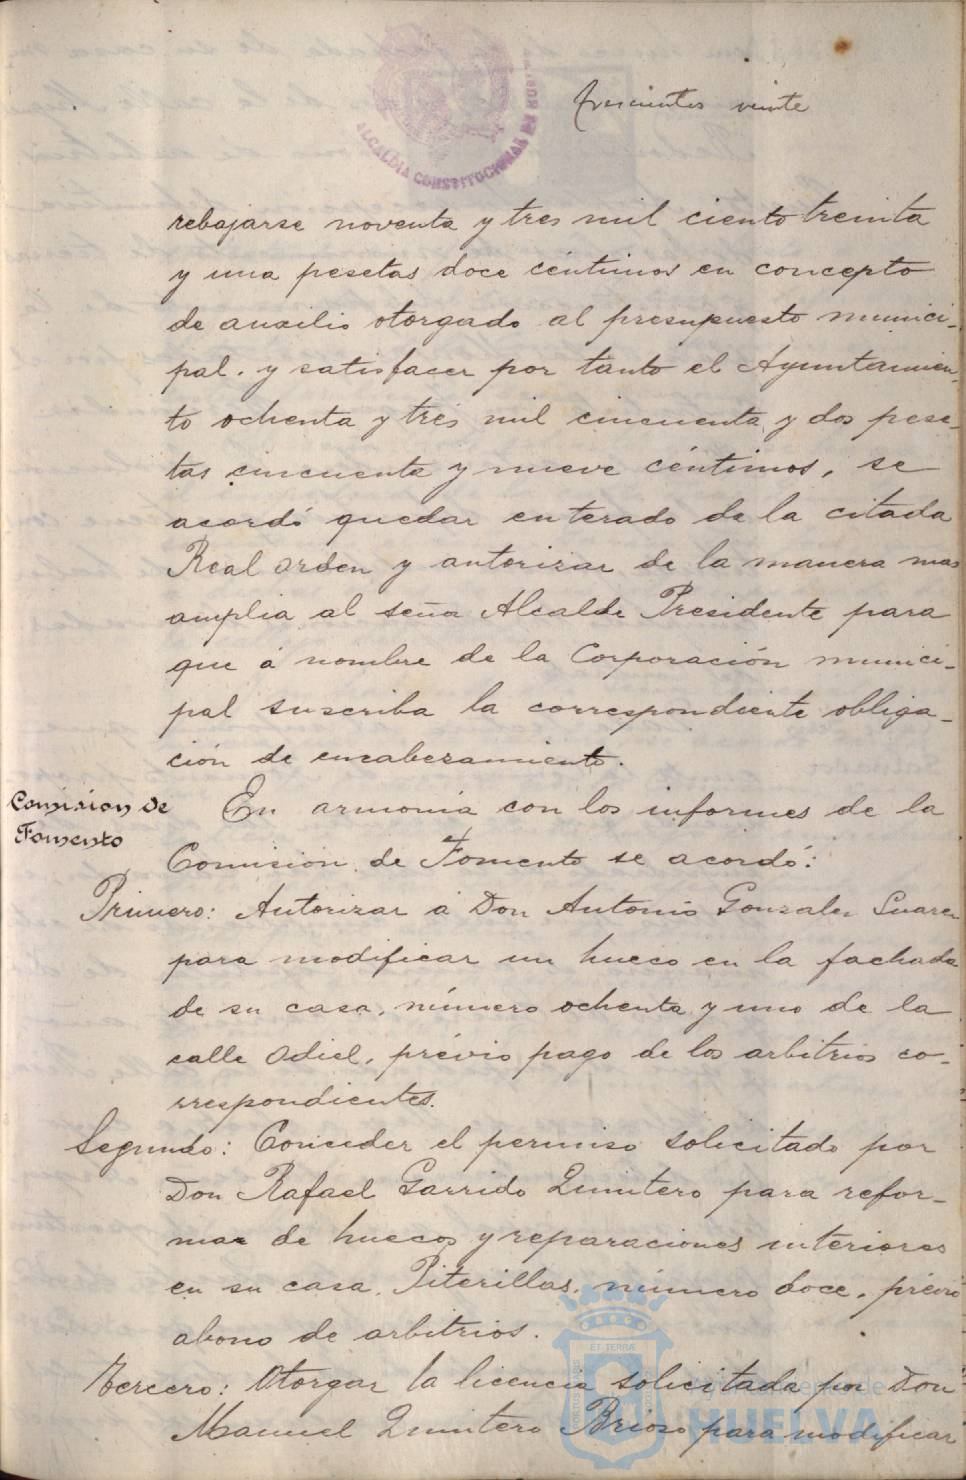 trescientos veinte
ALCALDIA CONSTITUCIONAL
rebajarse noventa y tres mil ciento treinta
y una pesetas doce céntimos en concepto
de auxilio otorgado al presupuesto munici-
pal. y satisfacer por tanto el Ayuntamien-
to ochenta y tres mil cincuenta y dos pese-
tas cincuenta y nueve céntimos, se
acordó quedar enterado de la citada
Real orden y autorizar de la manera mas
amplia al seña Alcalde Presidente para
que á nombre de la Corporación munici-
pal suscriba la correspondiente obliga-
ción de encabezamiento.
Comision de
Fomento
En armonia con los informes de la
Comision de Fomento se acordó:
Primero: Autorizar á Don Antonio Gonzalez Suarez
para modificar un hueco en la fachada
de su casa, número ochenta y uno de la
calle Odiel, prévio pago de los arbitrios co-
rrespondientes.
Segundo: Conceder el permiso solicitado por
Don Rafael Garrido Quintero para refor-
mar de huecos y reparaciones interiores
en su casa, Piterillas, número doce, prévio
abono de arbitrios.
Tercero: Otorgar la licencia solicitada por Don
Manuel Quintero Brioso para modificar
ET TERRÆ
Ayuntamiento de
HUELVA